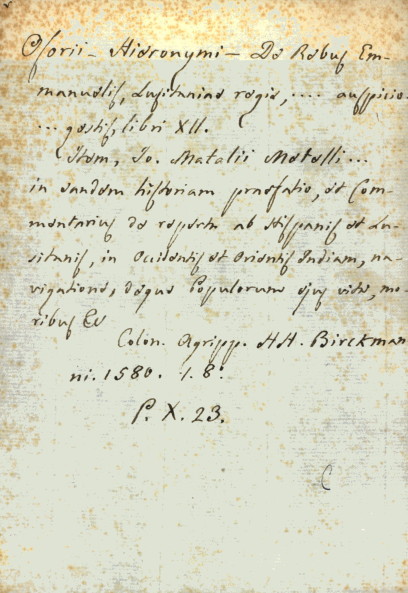 Osorii - Hieronymi - De Rebus Em-
manuelis, Lusitaniae regis, .... auspicio
... gestis, libri XII.
Item, Jo. Matalii Metelli ...
in eandem historiam praefatio, et Com-
mentarius de repertu ab Hispanis et Lu-
sitanis, in Occidentis et Orientis Indiam, na-
vigatione, deque Populorum ejus vita, mo-
ribus &c
Colon. Agripp. HH. Birckman
ni. 1580. 1. 8º
P. X. 23.